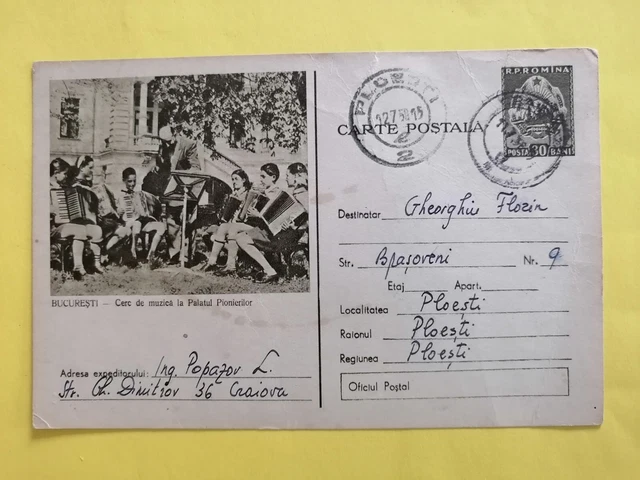 R.P.ROMINA
POSTA 30 BANI
PLOEȘTI
12.7.58.15
2
CARTE POSTALA
Destinatar Gheorghiu Florin
Str. Brașoveni Nr. 9
Etaj Apart.
Localitatea Ploești
Raionul Ploești
Regiunea Ploești
Oficiul Poștal
BUCUREȘTI — Cerc de muzică la Palatul Pionierilor
Adresa expeditorului: Ing. Popazov L.
Str. Gh. Dimitrov 36 Craiova